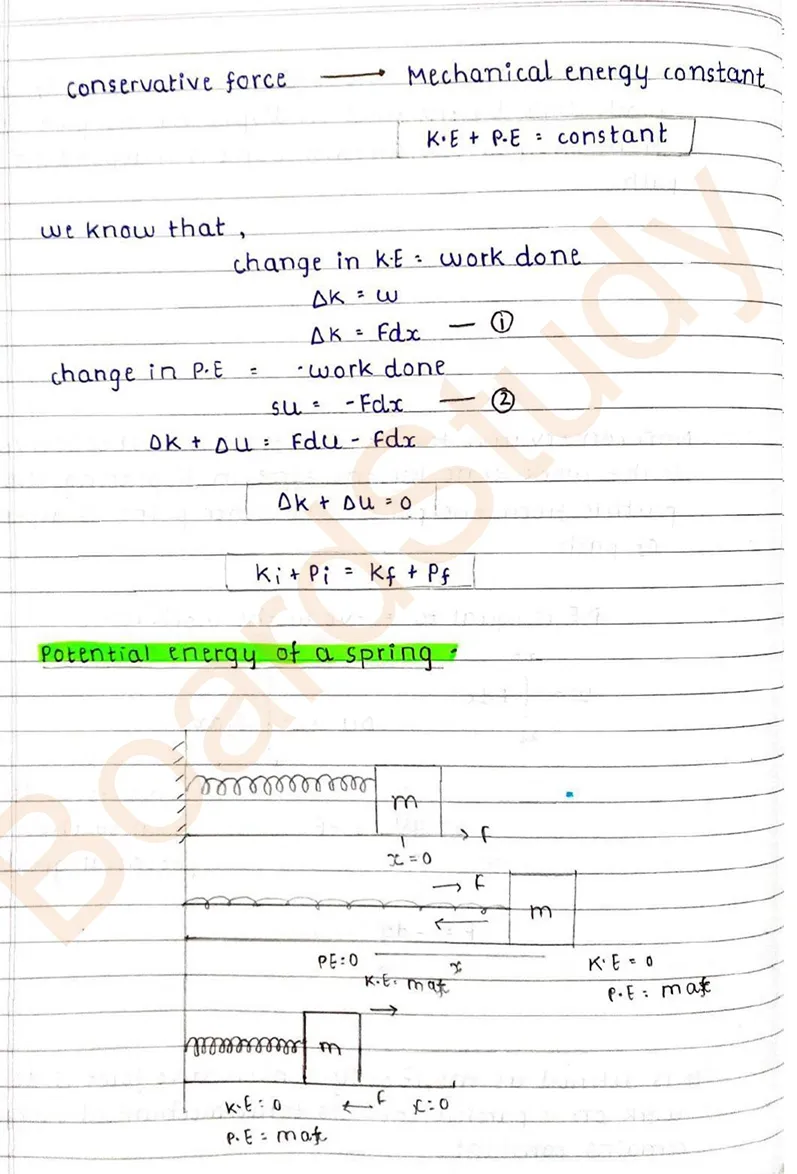 conservative force ⟶ Mechanical energy constant
K.E + P.E = constant
we know that,
change in K.E = work done
ΔK = w
ΔK = Fdx — ①
change in P.E = -work done
su = -Fdx — ②
ΔK + ΔU = Fdu - Fdx
Δk + Δu = 0
Ki + Pi = Kf + Pf
Potential energy of a spring
m
→ F
x = 0
→ F
m
←
PE = 0 x K.E = 0
K.E. max P.E = max
→
m
K.E = 0 ← F x = 0
P.E = max
BoardStudy